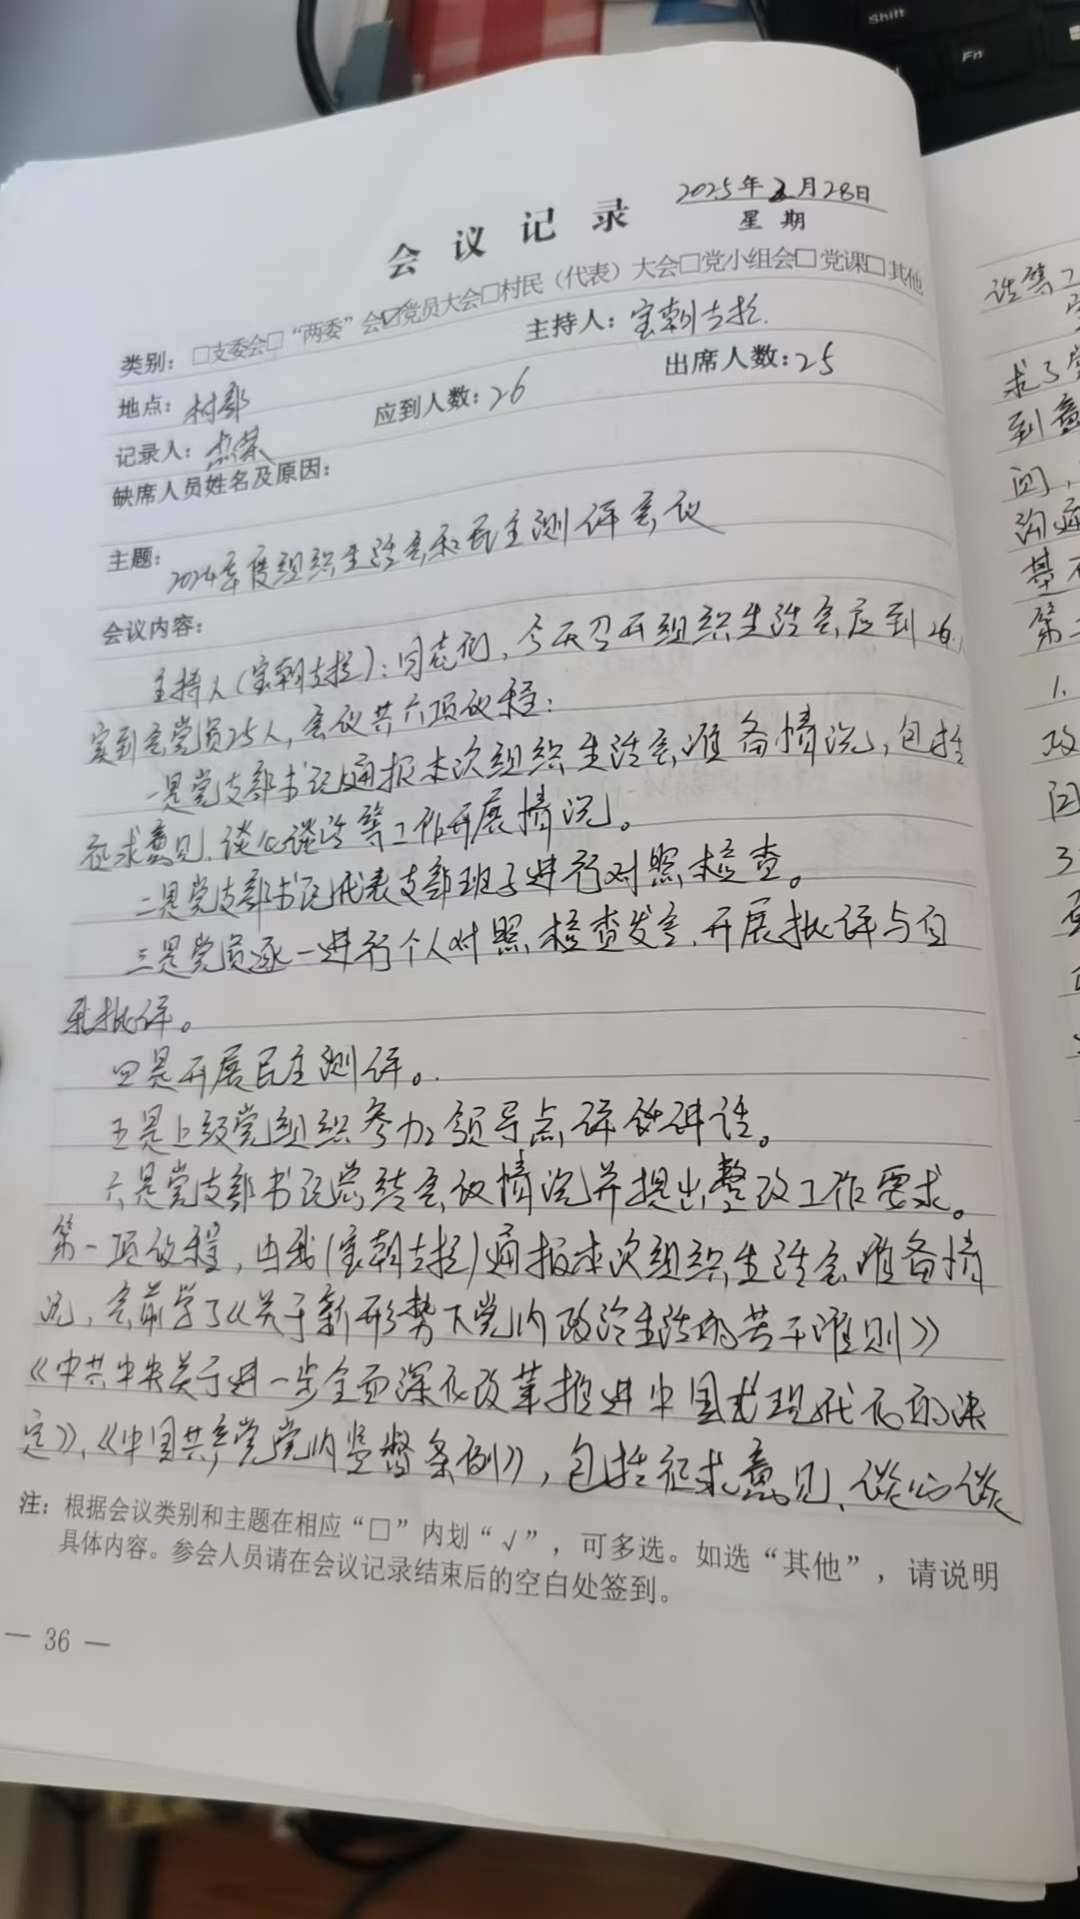 Shift
Fn
2025年2月28日
会议记录
星期
类别：□支委会□“两委”会☑党员大会□村民（代表）大会□党小组会□党课□其他
地点：村部 主持人：宝朝吉拉
记录人： 应到人数：26 出席人数：25
缺席人员姓名及原因：
主题：2024年度组织生活会和民主测评会议
会议内容：
主持人（宝朝吉拉）：同志们，今天召开组织生活会应到26人
实到会党员25人，会议共六项议程：
一是党支部书记通报本次组织生活会准备情况，包括
征求意见、谈心谈话等工作开展情况。
二是党支部书记代表支部班子进行对照检查。
三是党员逐一进行个人对照检查发言，开展批评与自
我批评。
四是开展民主测评。
五是上级党组织参加领导点评讲话。
六是党支部书记总结会议情况并提出整改工作要求。
第一项议程，由我（宝朝吉拉）通报本次组织生活会准备情
况，会前学了《关于新形势下党内政治生活的若干准则》
《中共中央关于进一步全面深化改革推进中国式现代化的决
定》、《中国共产党党内监督条例》，包括征求意见、谈心谈
注：根据会议类别和主题在相应“□”内划“√”，可多选。如选“其他”，请说明
具体内容。参会人员请在会议记录结束后的空白处签到。
— 36 —
话等工
求了
到意
间，
沟通
第二
1.
改
3